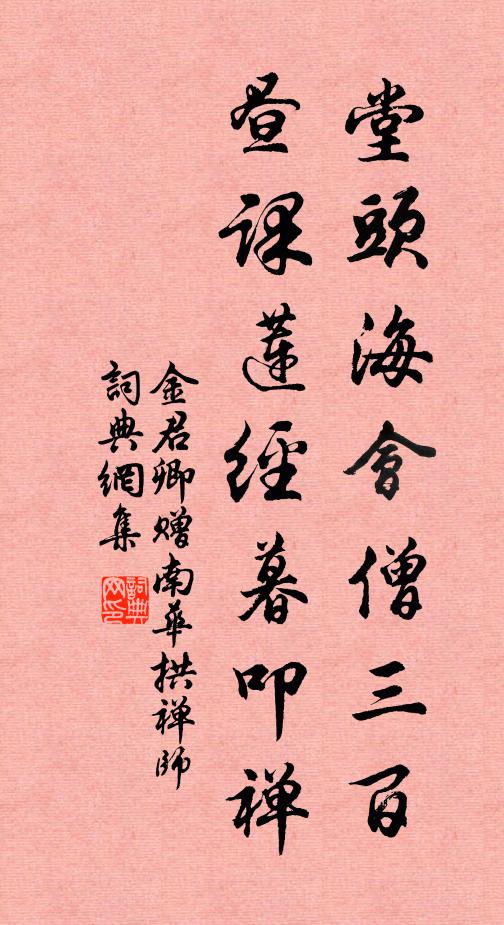 堂頭海會僧三百
昼課蓮經暮叩禅
金君卿赠南華拱禅師
詞典網集
詞典网印